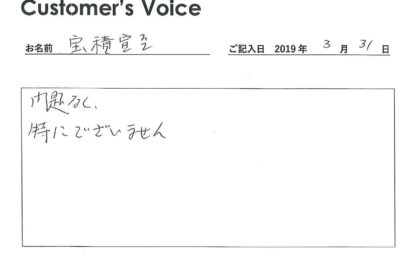 Customer's Voice
お名前 宝積宣至 ご記入日 2019年 3月 31日
問題なく、
特にございません